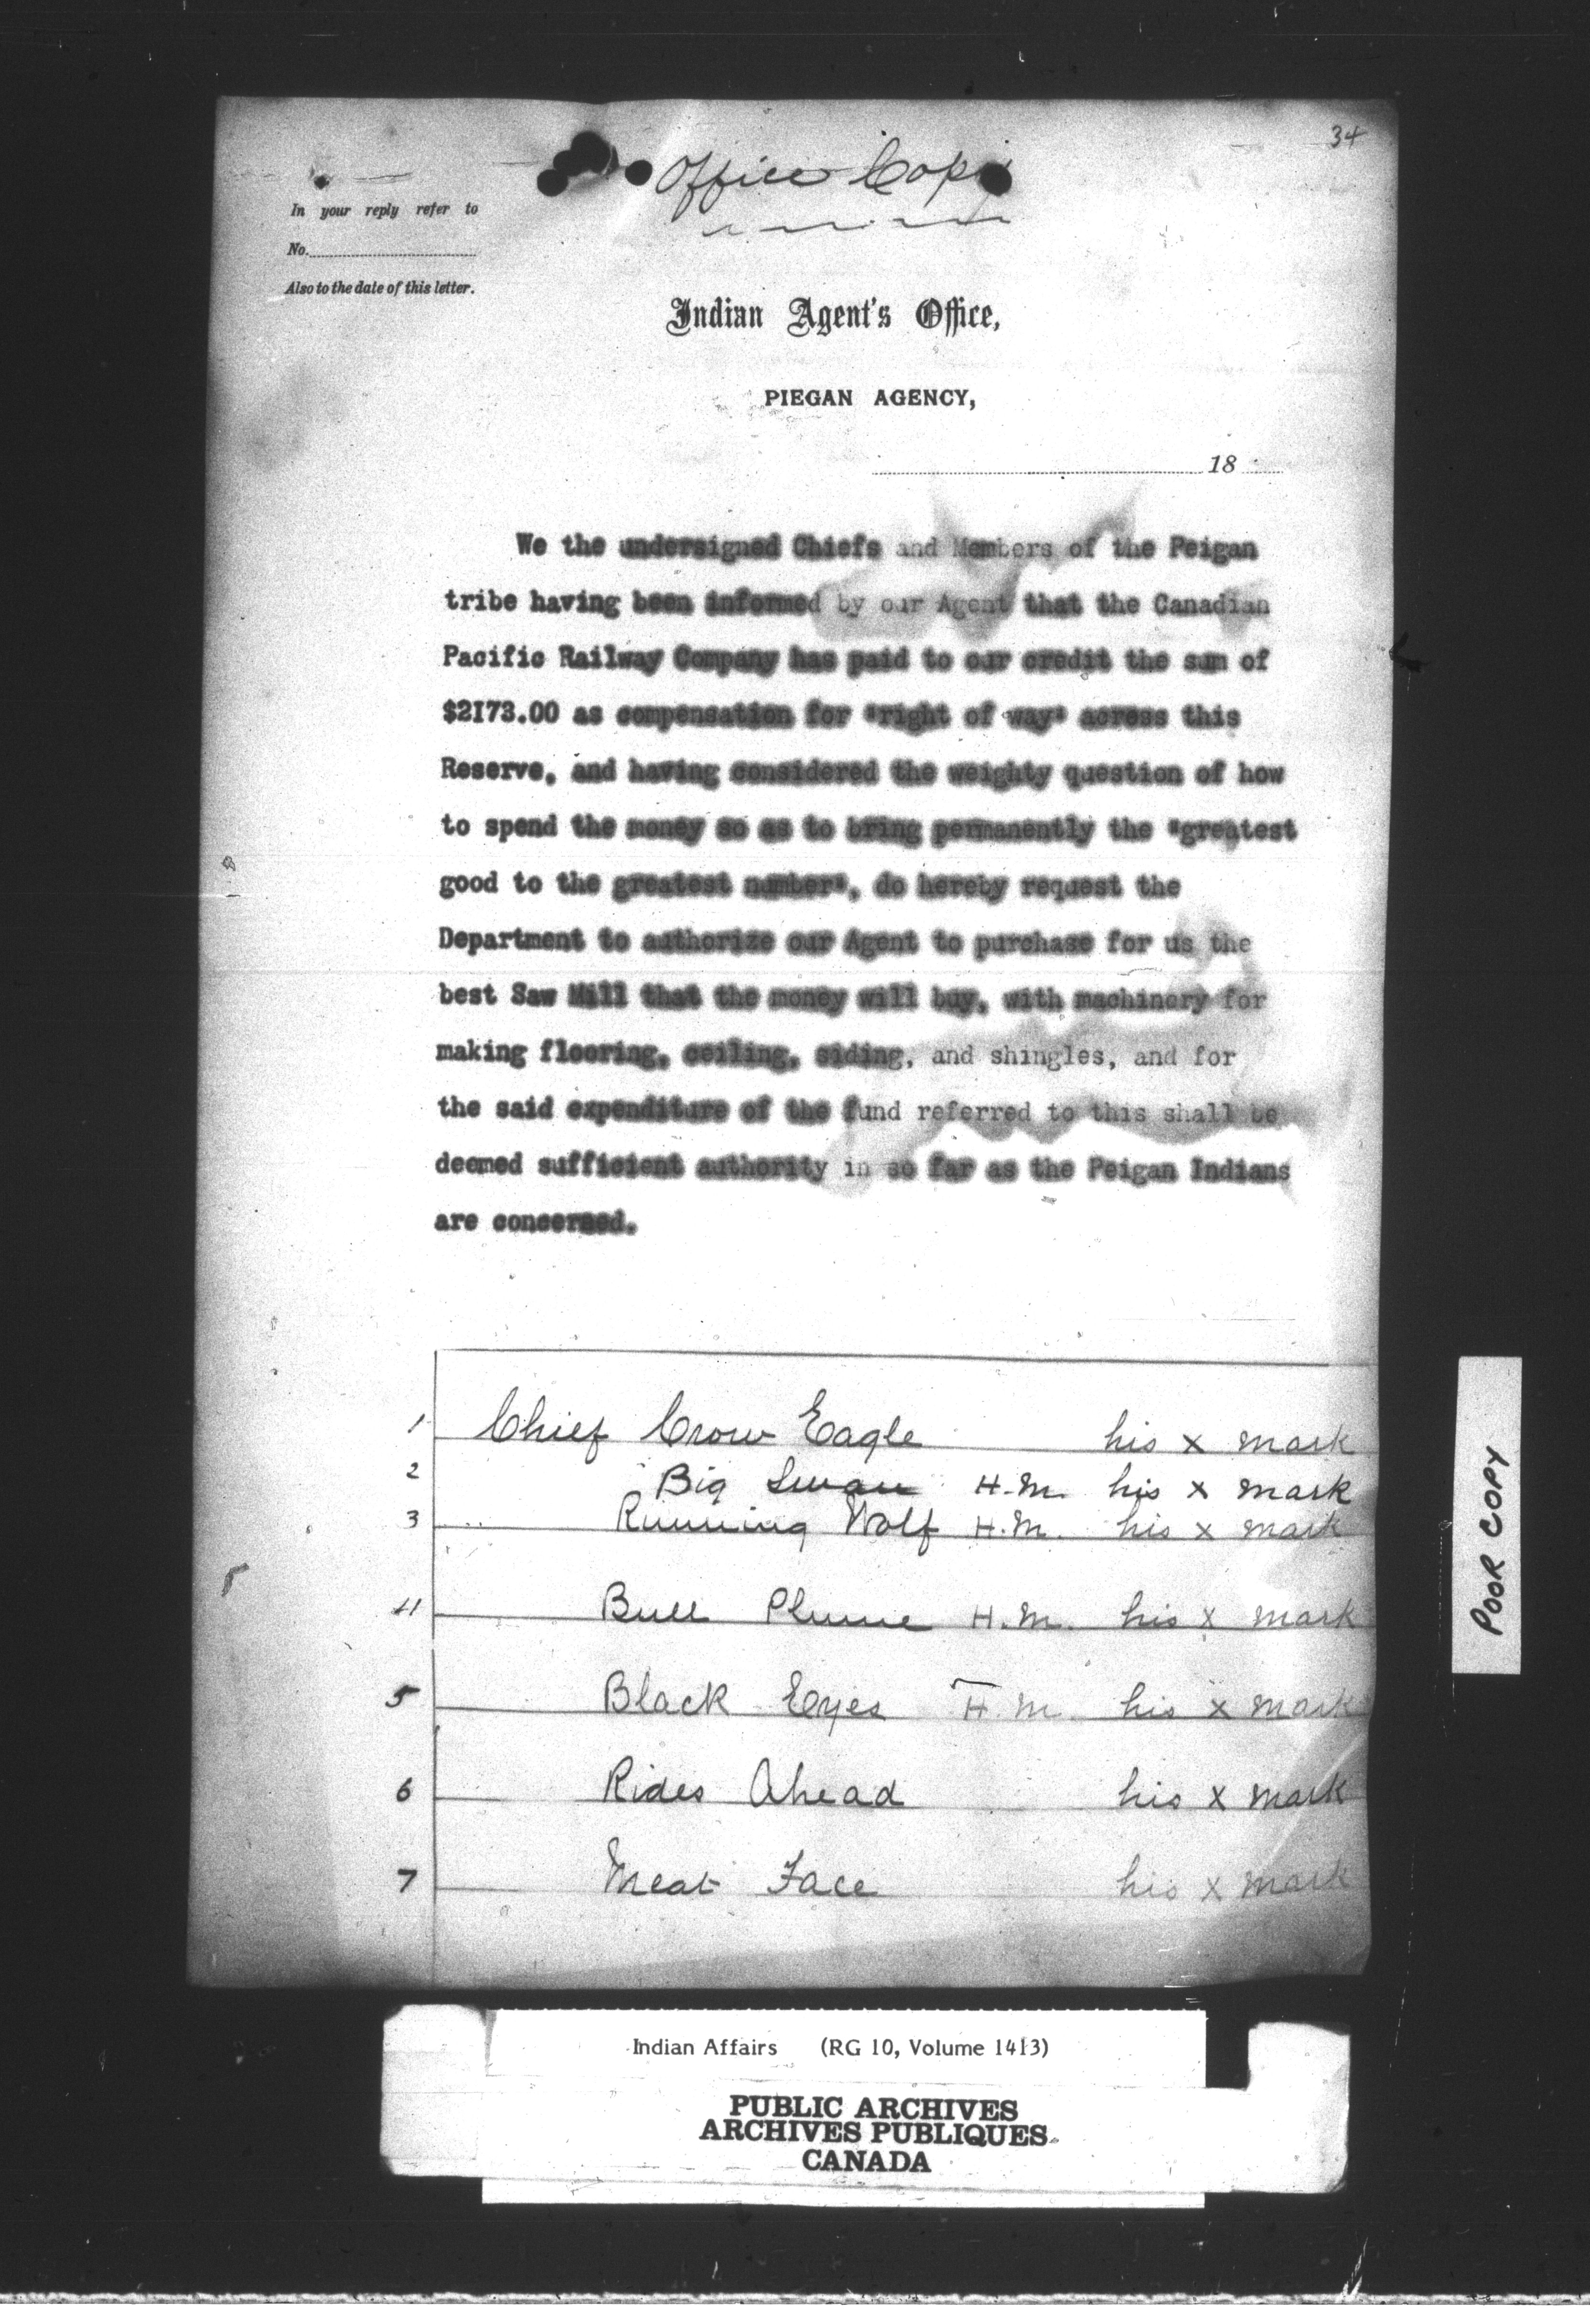 34
Office Copy
In your reply refer to
No.
Also to the date of this letter.
Indian Agent's Office,
PIEGAN AGENCY,
18
We the undersigned Chiefs and Members of the Peigan
tribe having been informed by our Agent that the Canadian
Pacific Railway Company has paid to our credit the sum of
$2173.00 as compensation for "right of way" across this
Reserve, and having considered the weighty question of how
to spend the money so as to bring permanently the "greatest
good to the greatest number", do hereby request the
Department to authorize our Agent to purchase for us the
best Saw Mill that the money will buy, with machinery for
making flooring, ceiling, siding, and shingles, and for
the said expenditure of the fund referred to this shall be
deemed sufficient authority in so far as the Peigan Indians
are concerned.
1 Chief Crow Eagle his x mark
2 Big Swan H.M. his x mark
3 Running Wolf H.M. his x mark
4 Bull Plume H.M. his x mark
5 Black Eyes H.M. his x mark
6 Rides Ahead his x mark
7 Meat Face his x mark
POOR COPY
Indian Affairs (RG 10, Volume 1413)
PUBLIC ARCHIVES
ARCHIVES PUBLIQUES
CANADA